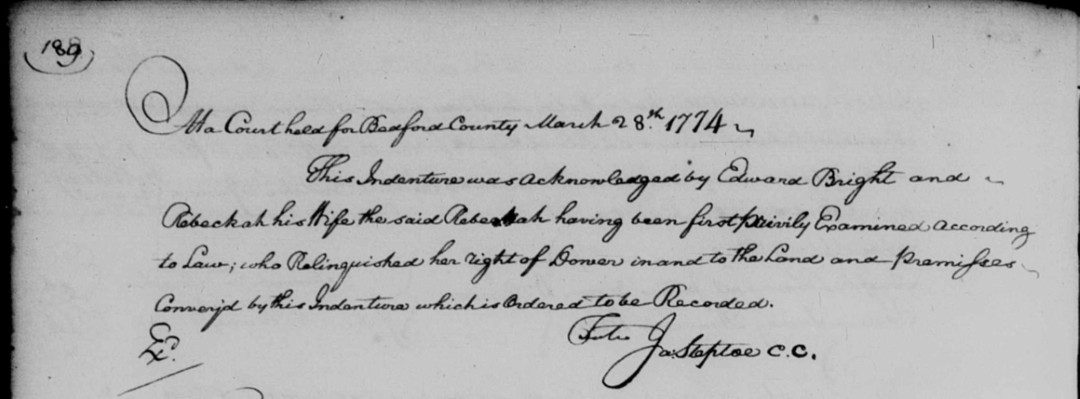 189
At a Court held for Bedford County March 28.th 1774
This Indenture was acknowledged by Edward Bright and
Rebeckah his Wife the said Rebeckah having been first privily Examined according
to Law; who Relinquished her right of Dower in and to the Land and Premisses
Convey'd by this Indenture which is Ordered to be Recorded.
Teste Ja. Steptoe C.C.
Ex.